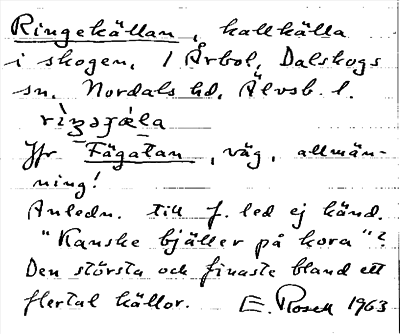 Ringekällan, kallkälla
i skogen, i Årbol, Dalskogs
sn, Nordals hd, Älvsb. l.
Jfr Fägatan, väg, allmän-
ning!
Anledn. till f. led ej känd.
"Kanske bjäller på kora"?
Den största och finaste bland ett
flertal källor. E. Rosell 1963